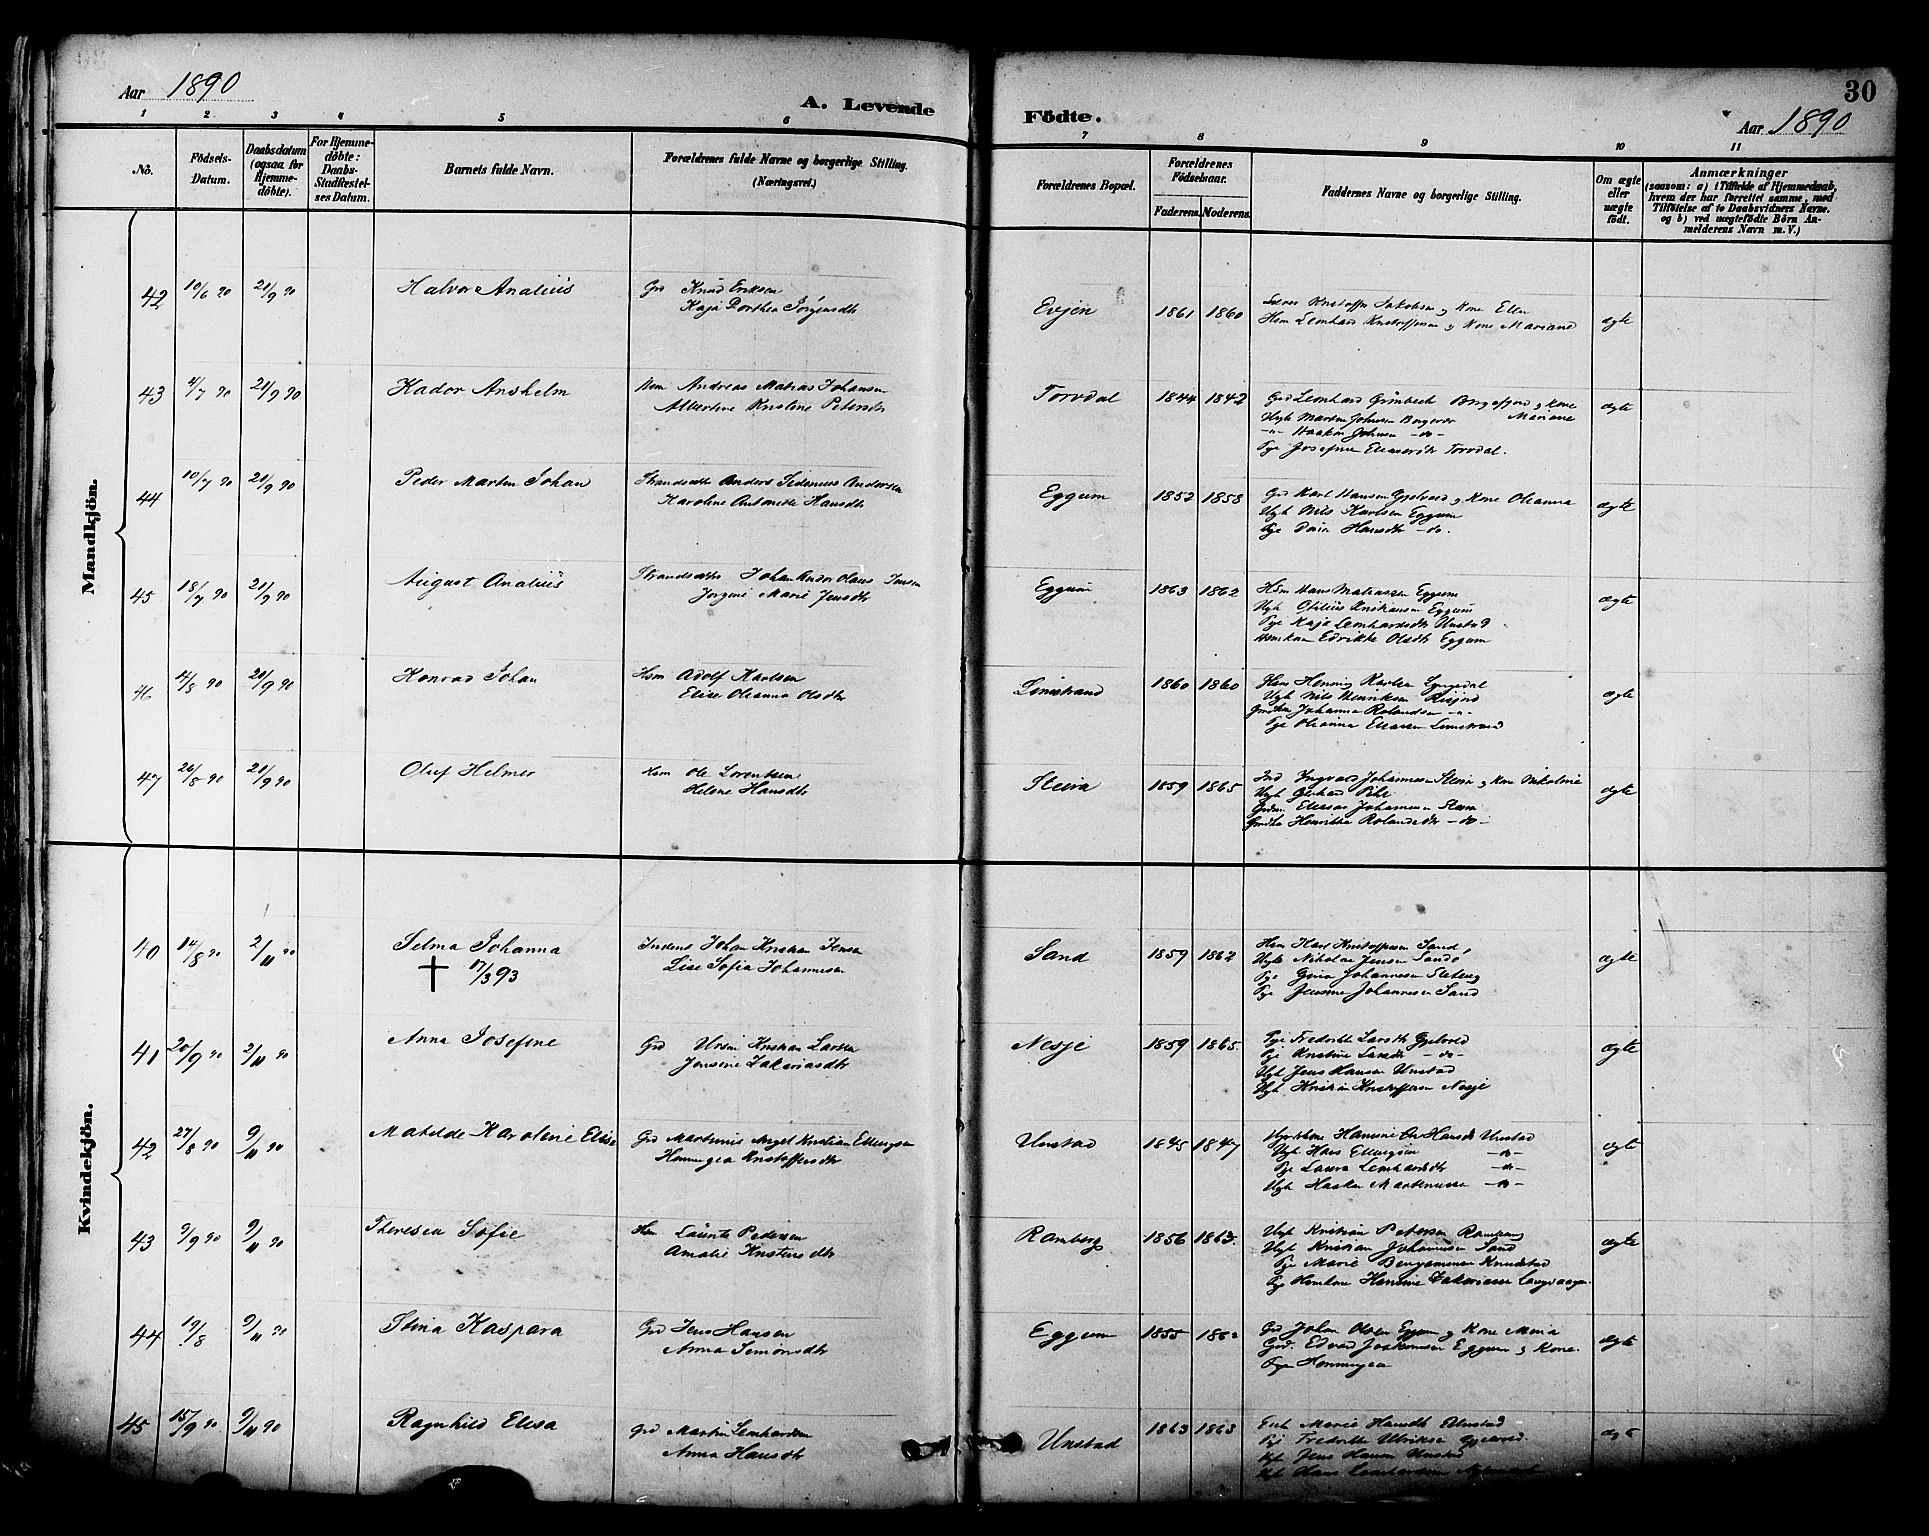 Aar 1890
A. Levende
Födte.
Aar 1890
30
1 2 3 4 5 6 7 8 9 10 11
No.
Födsels-
Datum.
Daabsdatum
(ogsaa for
Hjemme-
döbte).
For Hjemme-
döbte:
Daabs-
Stadfæstel-
ses Datum.
Barnets fulde Navn.
Forældrenes fulde Navne og borgerlige Stilling.
(Næringsvei.)
Forældrenes Bopæl.
Forældrenes
Födselsaar.
Faderens. Moderens.
Faddernes Navne og borgerlige Stilling.
Om ægte
eller
uægte
födt.
Anmærkninger
(saasom: a) i Tilfælde af Hjemmedaab,
hvem der har forrettet samme, med
Tilföielse af to Daabsvidners Navne.
og b) ved uægtefödte Börn An-
melderens Navn m. V.)
Mandkjön.
42 10/6 90 21/9 90 Halvor Analius Grd Knud Eriksen
Kaja Dorthea Jörgensdtr
Evjen 1861 1860 Kristoffer Jakobsen og Kone Ellen
Hsm Lemhard Kristoffersen og Kone Mariane
ægte
43 4/7 90 21/9 90 Kador Anshelm Hsm Andreas Matias Johansen
Albertine Kristine Petersdtr
Torvdal 1844 1842 Grd Lemhard Grönbech Borgefjord og Kone
Mariane
Ugk Martin Johnsen
Haakon Johnsen -do-
Pge Josefine Eliasesdtr Torvdal.
ægte
44 10/7 90 21/9 90 Peder Martin Johan Strandsidder Anders Sedenius Andersen
Karoline Antonette Hansdtr
Eggum 1852 1858 Grd Karl Hansen Gjelvold og Kone Oleanna
Ugk Nils Karlsen Eggum
Pge Hansdtr -do-
ægte
45 18/7 90 21/9 90 August Analius Strandsidder Johan Andor Olaus Jensen
Jörgine Marie Jensdtr
Eggum 1863 1862 Hsm Hans Matiassen Eggum
Ugk Otelius Kristiansen Eggum
Pge Kaja Lemhardsdtr Unstad
Edrikke Olsdtr Eggum
ægte
46 4/8 90 21/9 90 Konrad Johan Hsm Adolf Karlsen
Elise Oleanna Olsdtr
Limstrand 1860 1860 Henning Karlsen
Ugk Nils Henriksen
Johanna Rolandsen
Pge Oleanna Eliassen Limstrand
ægte
47 26/8 90 21/9 90 Oluf Helmer Hsm Ole Lorentsen
Helene Hansdtr
Steira 1859 1865 Ind Ingvald Johannessen Steira og Kone Nikoline
Ugk Gerhard
Elieser Johannessen Steira
Henrikka Rolandsdtr -do-
ægte
Kvindekjön.
40 14/8 90 2/11 90 Selma Johanna
† 17/3 93
Inderst Johan Kristian Jensen
Lise Sofia Johannesen
Sand 1859 1862 Hsm Karl Kristoffersen Sand
Ugk Nikolai Jensen Sand
Pge Gina Johannesen
Pge Jensine Johannesen Sand
ægte
41 20/9 90 2/11 90 Anna Josefine Grd Ursin Kristian Larsen
Jensine Zakariasdtr
Nesje 1859 1865. Pge Fredrikke Larsdtr Gjelvold
Pge Kristine Larsdtr -do-
Ugk Jens Hansen Unstad
Ugk Kristian Kristoffersen Nesje
ægte
42 27/8 90 9/11 90 Matilde Karoline Elise Grd Martinus Angel Kristian Ellingsen
Hemmingea Kristoffersdtr
Unstad 1845 1847 Hansdtr Unstad
Ugk Hans Ellingsen -do-
Pge Laura Lemhardsdtr -do-
Ugk Haakon Martinussen -do-
ægte
43 9/9 90 9/11 90 Theresea Sofie Hsm Laurits Pedersen
Amalie Kristensdtr
Ramberg 1856 1863. Ugk Kristian Petersen Ramberg
Ugk Kristian Johannesen Sand
Pge Marie Benjaminsen Knudstad
Hansine Zakariassen
ægte
44 19/8 9/11 90 Stina Kaspara Grd Jens Hansen
Anna Simonsdtr
Eggum 1855 1862 Grd Johan Olsen Eggum og Kone Meria
Grd. Edvard Joakimsen Eggum og Kone.
Pge Hemmingea
ægte
45 15/9 90 9/11 90 Ragnhild Elisa Grd Martin Lemhardsen
Anna Hansdtr
Unstad 1863 1863 Marie Hansdtr Unstad
Pge Fredrikke Ulriksen Gjelvold.
Ugk Jens Hansen Unstad
Ugk Hans Lemhardsen
ægte